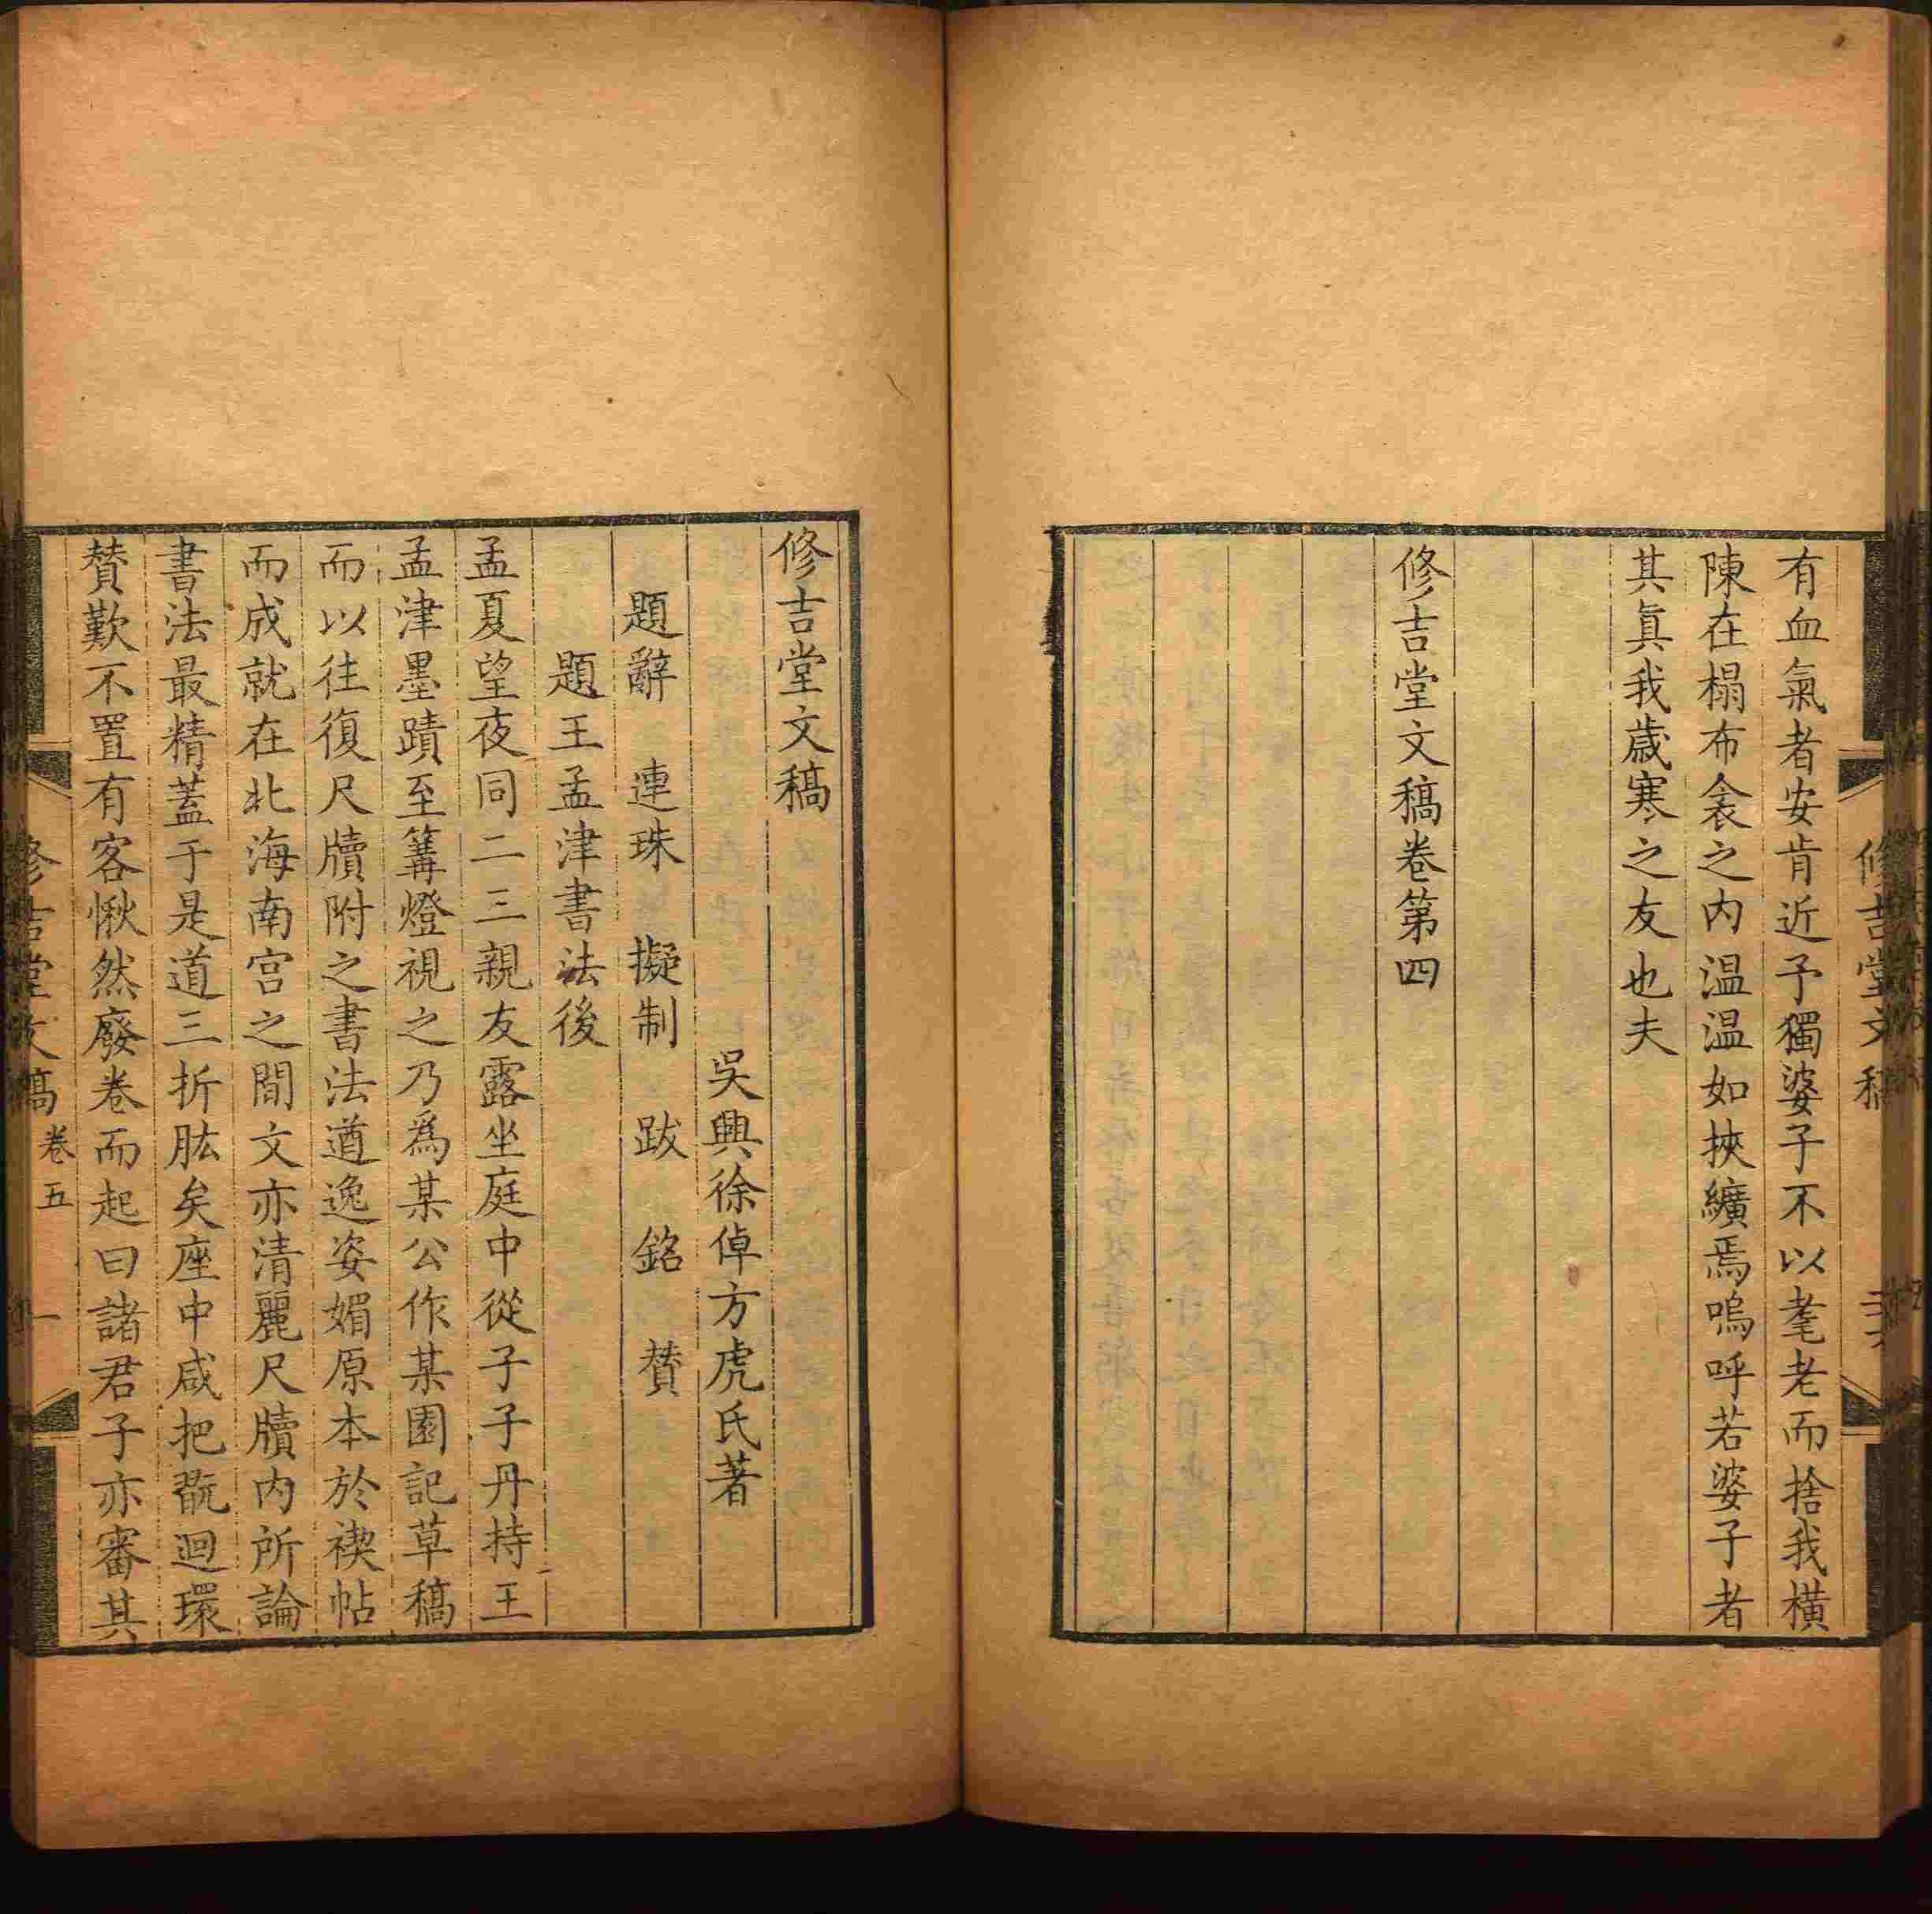 有血氣者安肯近予獨婆子不以耄老而捨我橫
陳在榻布衾之內温温如挾纊焉嗚呼若婆子者
其眞我歲寒之友也夫
修吉堂文稿卷第四
修吉堂文稿
修吉堂文稿
吳興徐倬方虎氏著
題辭 連珠 擬制 跋 銘 贊
題王孟津書法後
孟夏望夜同二三親友露坐庭中從子子丹持王
孟津墨蹟至篝燈視之乃爲某公作某園記草稿
而以往復尺牘附之書法遒逸姿媚原本於禊帖
而成就在北海南宫之間文亦清麗尺牘内所論
書法最精蓋于是道三折肱矣座中咸把翫迴環
贊歎不置有客愀然廢卷而起曰諸君子亦審其
修吉堂文稿 卷五 一